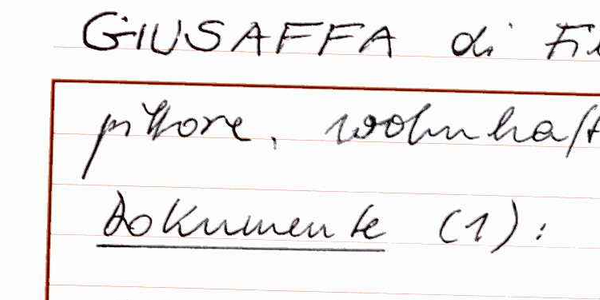 GIUSAFFA di Fi
pittore, wohnhaft
Dokumente (1):